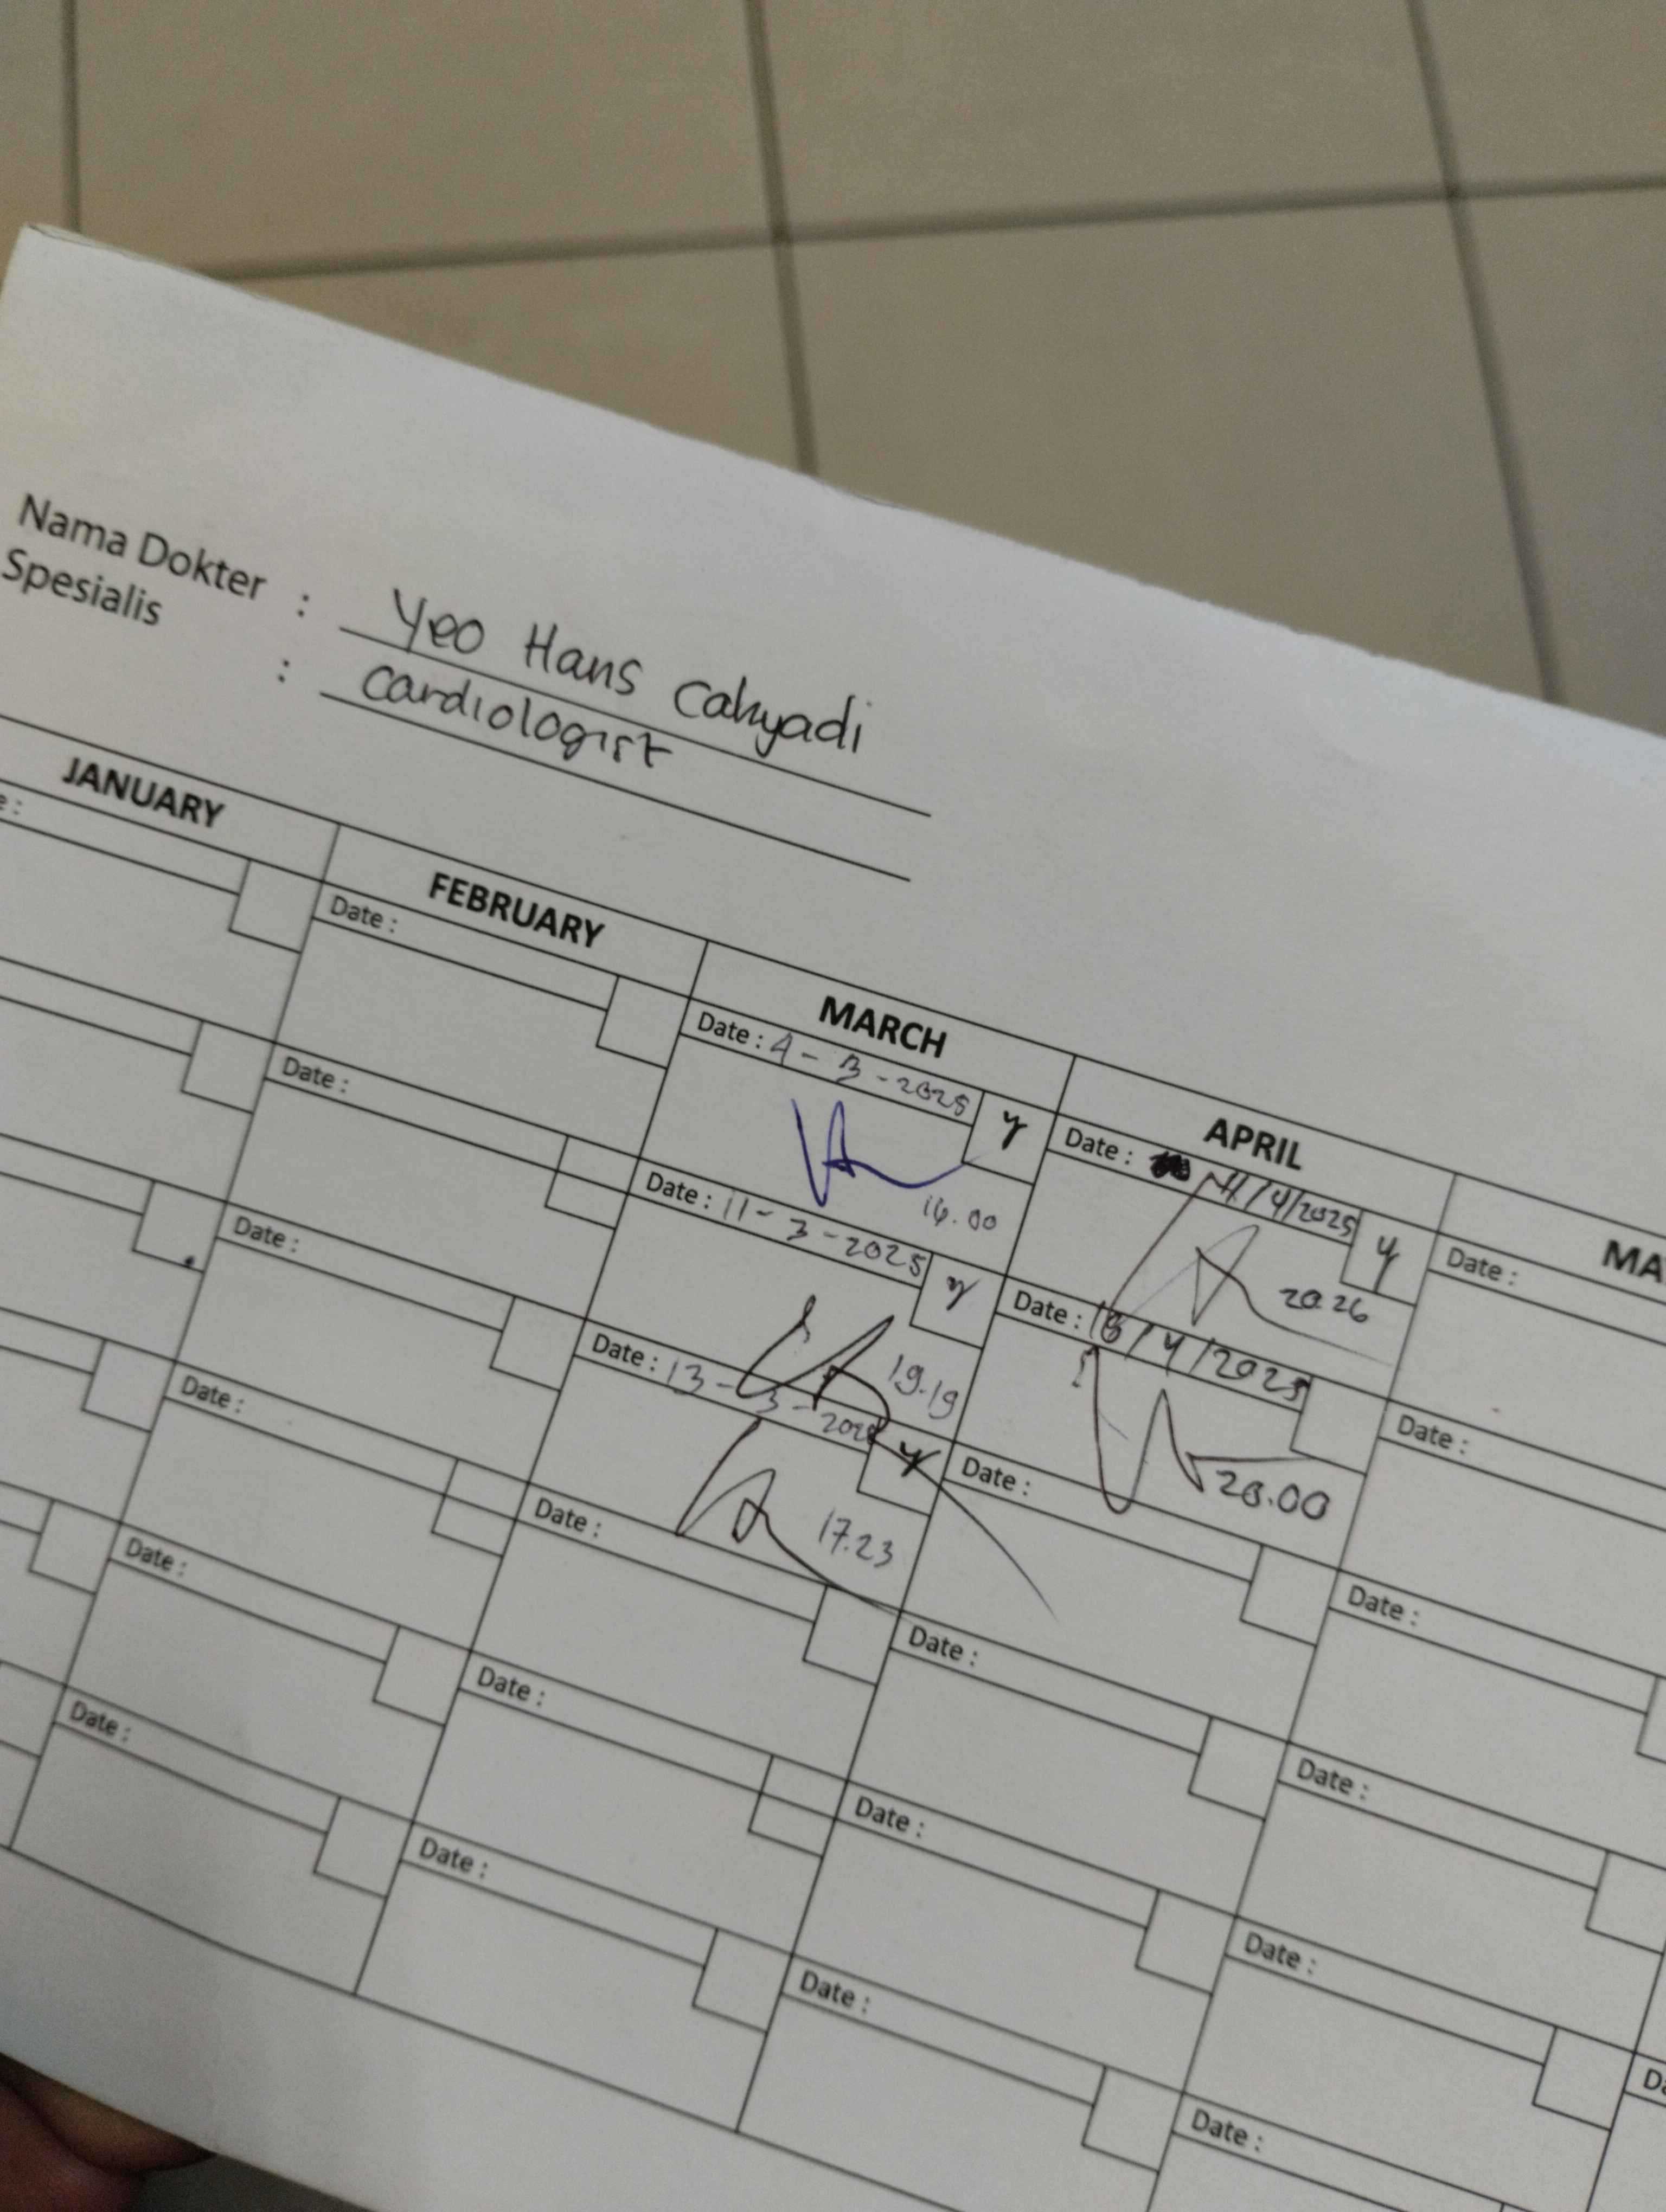 Nama Dokter : Yeo Hans Cahyadi
Spesialis : Cardiologist
JANUARY FEBRUARY MARCH APRIL
e : Date : Date : 4 - 3 - 2025 y Date : 11/4/2025 y Date :
16.00 20.26
Date : Date : 11 - 3 - 2025 y Date : 18/4/2025 Date :
19.19 20.00
Date : Date : 13 - 3 - 2025 y Date : Date :
17.23
Date : Date : Date : Date :
Date : Date : Date : Date :
Date : Date : Date : Date :